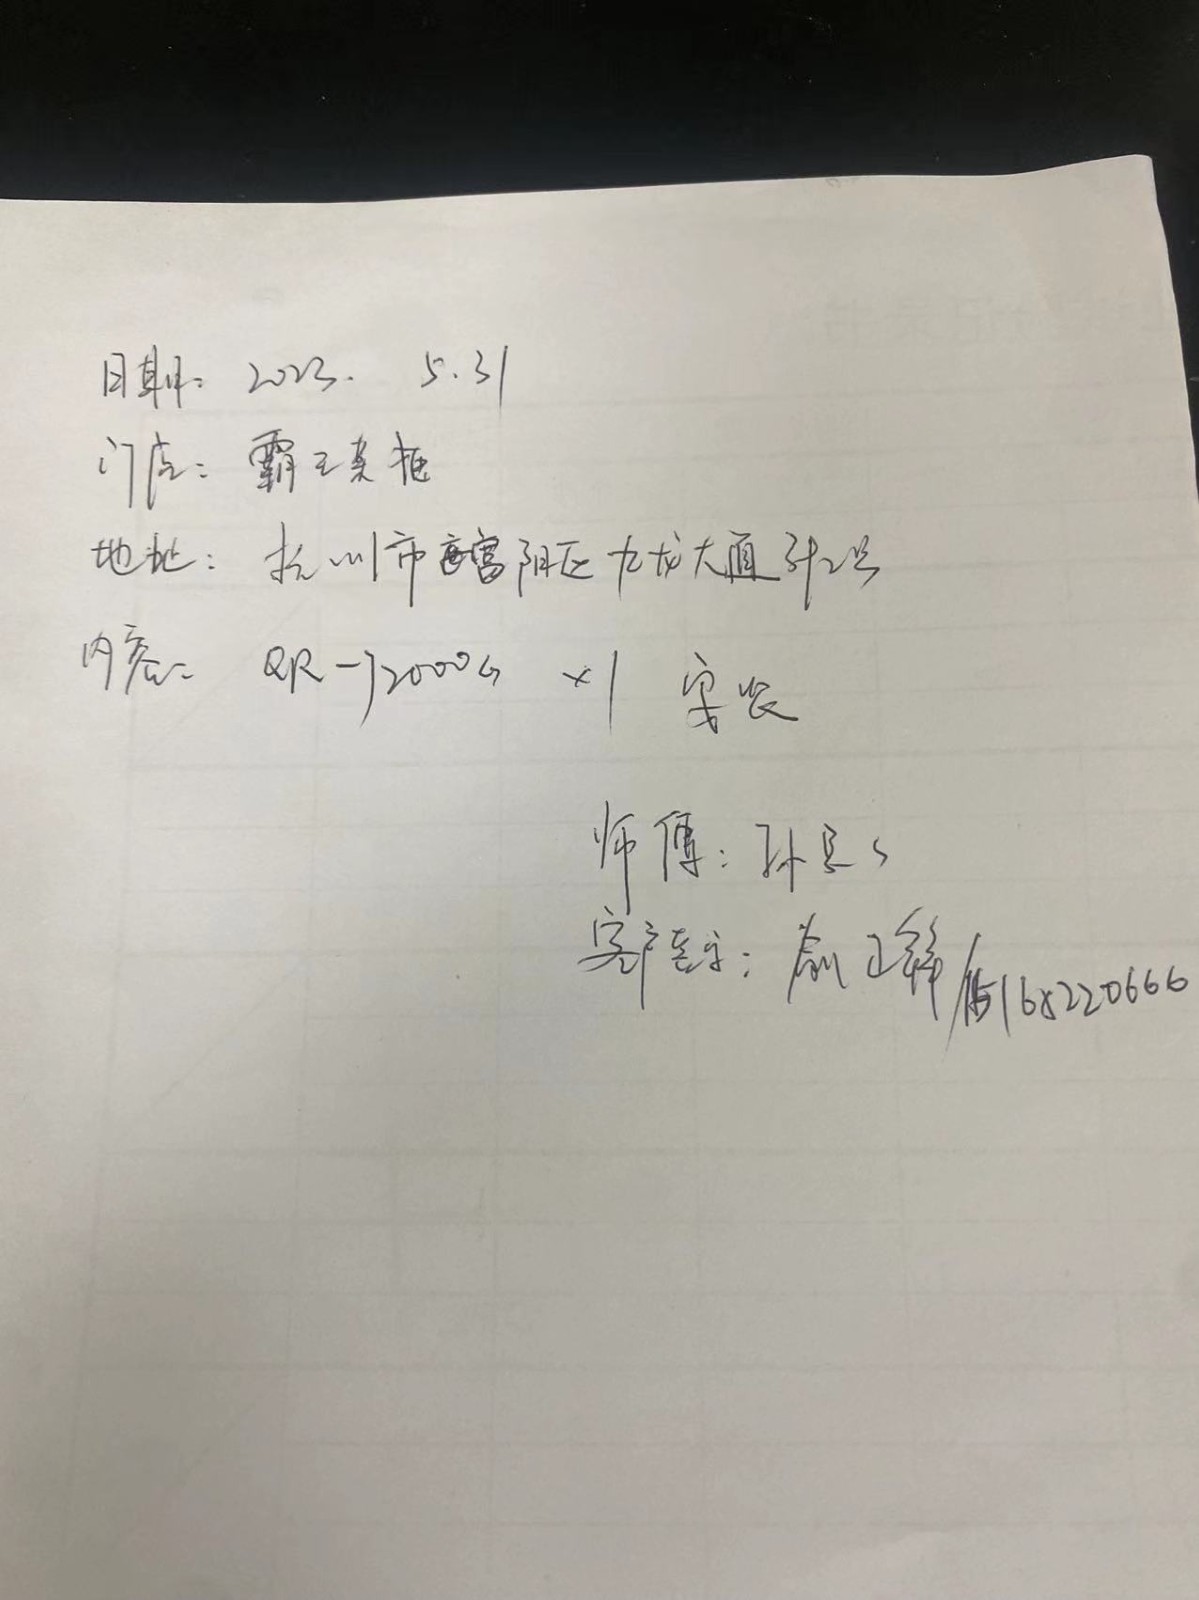 日期: 2023. 5.31
门店: 霸王茶姬
地址: 杭州市富阳区九龙大道
内容: QR-J2000G ×1 安装
师傅: 孙
客户签字: 俞